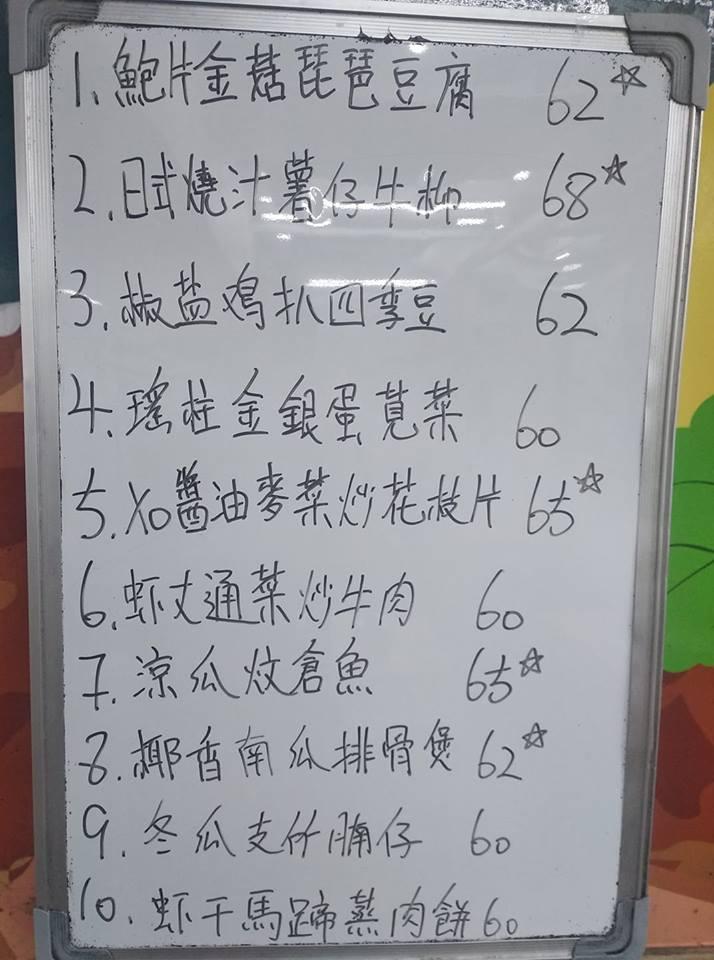 1. 鮑片金菇琵琶豆腐 62☆
2. 日式燒汁薯仔牛柳 68☆
3. 椒盐鸡扒四季豆 62
4. 瑤柱金銀蛋莧菜 60
5. XO醬油麥菜炒花枝片 65☆
6. 虾丈通菜炒牛肉 60
7. 涼瓜炆倉魚 65☆
8. 椰香南瓜排骨煲 62☆
9. 冬瓜支竹腩仔 60
10. 虾干馬蹄蒸肉餅 60